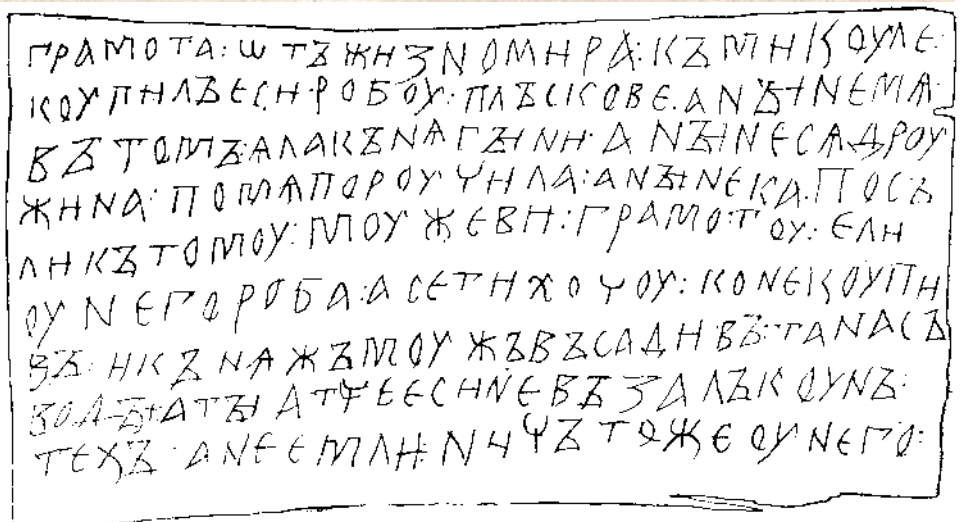 ГРАМОТА:ѠТЪЖИЗНОМИРА:КЪМИКОУЛЕ:
КОУПИЛЪЕСИ·РОБОУ:ПЛЪСКОВЕ.АНꙐНЕМѦ:
ВЪТОМЪ:ѦЛАКЪНѦГꙐНИ·АНꙐНЕСѦДРОУ
ЖИНА:ПОМѦПОРОУЧИЛА:АНꙐНЕКА.ПОСЪ
ЛИКЪТОМОУ:МОУЖЕВИ:ГРАМОТОУ:ЕЛИ
ОУНЕГОРОБА:АСЕТИХОЧОУ:КОНЕКОУПИ
ВЪ:ИКЪНѦЖЪМОУЖЪВЪСАДИВЪ:ТАНАСЪ
ВОДꙐ:АТꙐАТЧЕЕСИНЕВЪЗАЛЪКОУНЪ:
ТЕХЪ:АНЕЕМЛИ:НИЧЪТОЖЕОУНЕГО: